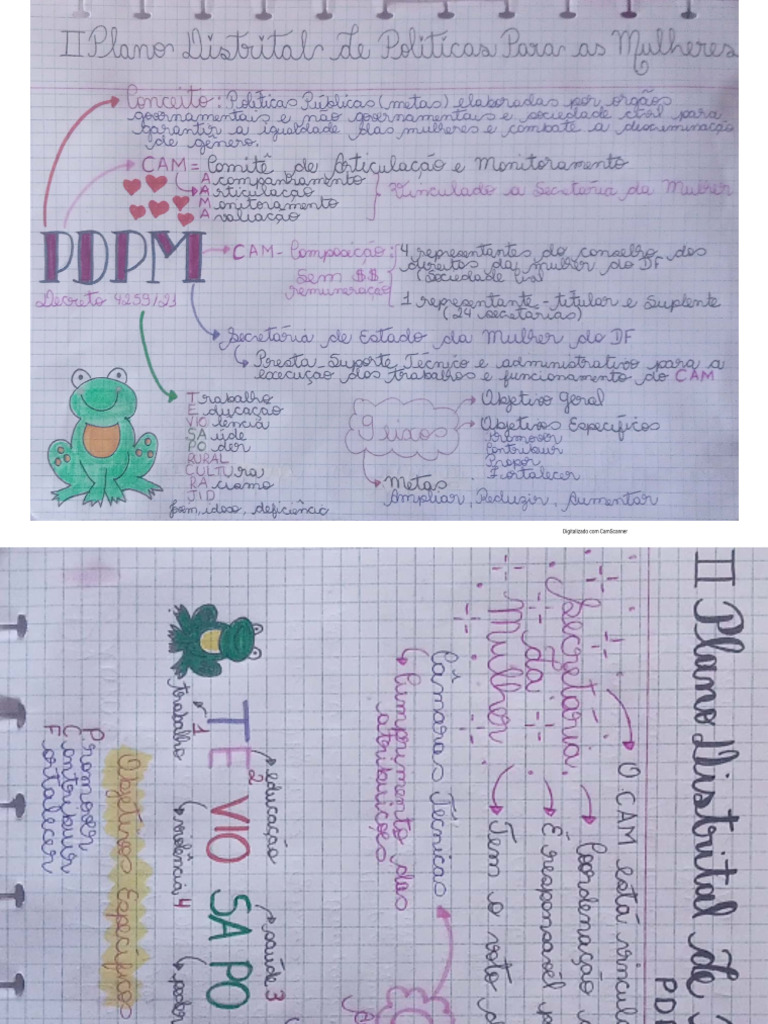 II Plano Distrital de Políticas Para as Mulheres
Conceito: Políticas Públicas (metas) elaboradas por orgãos
governamentais e não governamentais e sociedade civil para
garantir a igualdade das mulheres e combate a discriminação
de gênero.
CAM = Comitê de Articulação e Monitoramento
Acompanhamento
Articulação
Monitoramento
Avaliação
Vinculado a Secretária da Mulher
PDPM
Decreto 42.59/21
CAM - Composição:
Sem $$
remuneração
4 representantes do conselho dos
direitos da mulher do DF
(Sociedade Civil)
1 representante - titular e Suplente
(24 secretárias)
Secretária de Estado da Mulher do DF
Presta Suporte Técnico e administrativo para a
execução dos trabalhos e funcionamento do CAM
Trabalho
Educação
VIO lência
SAúde
POder
RURAL
CULTUra
RAcismo
JID
jovem, idoso, deficiência
9 eixos
Objetivo Geral
Objetivos Específicos
Promover
Contribuir
Propor
Fortalecer
Metas
Ampliar, Reduzir, Aumentar
Digitalizado com CamScanner
II Plano Distrital de
PD
Secretária
da
Mulher
O CAM está vincul
Coordenação
É responsável p
Tem o voto d
Câmaras Técnicas
Cumprimento das
atribuições
TE VIO SA PO
1 trabalho
2 educação
violência 4
saúde 3
poder
Objetivos Específicos
Promover
Contribuir
Fortalecer